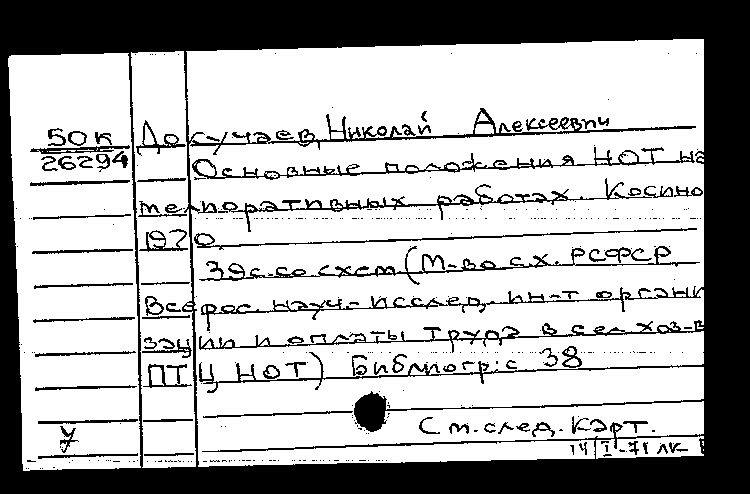 50К Докучаев, Николай Алексеевич
26294 Основные положения НОТ на
мелиоративных работах. Косино
1970.
39с. со схем (М-во с.х. РСФСР.
Всерос. науч.-исслед. ин-т органи
зации и оплаты труда в сел. хоз-в
ПТЦ НОТ) Библиогр: с 38
См. след. карт.
у
14/I-71 ЛК